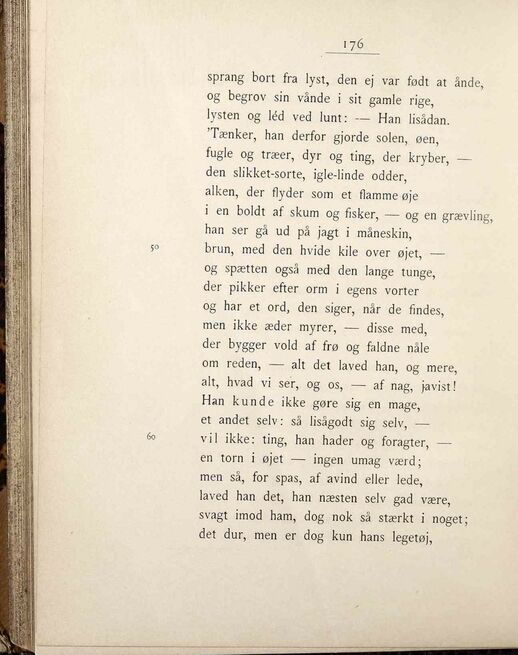 176
sprang bort fra lyst, den ej var født at ånde,
og begrov sin vånde i sit gamle rige,
lysten og léd ved lunt: — Han lisådan.
'Tænker, han derfor gjorde solen, øen,
fugle og træer, dyr og ting, der kryber, —
den slikket-sorte, igle-linde odder,
alken, der flyder som et flamme øje
i en boldt af skum og fisker, — og en grævling,
han ser gå ud på jagt i måneskin,
50 brun, med den hvide kile over øjet, —
og spætten også med den lange tunge,
der pikker efter orm i egens vorter
og har et ord, den siger, når de findes,
men ikke æder myrer, — disse med,
der bygger vold af frø og faldne nåle
om reden, — alt det laved han, og mere,
alt, hvad vi ser, og os, — af nag, javist!
Han kunde ikke gøre sig en mage,
et andet selv: så lisågodt sig selv, —
60 vil ikke: ting, han hader og foragter, —
en torn i øjet — ingen umag værd;
men så, for spas, af avind eller lede,
laved han det, han næsten selv gad være,
svagt imod ham, dog nok så stærkt i noget;
det dur, men er dog kun hans legetøj,